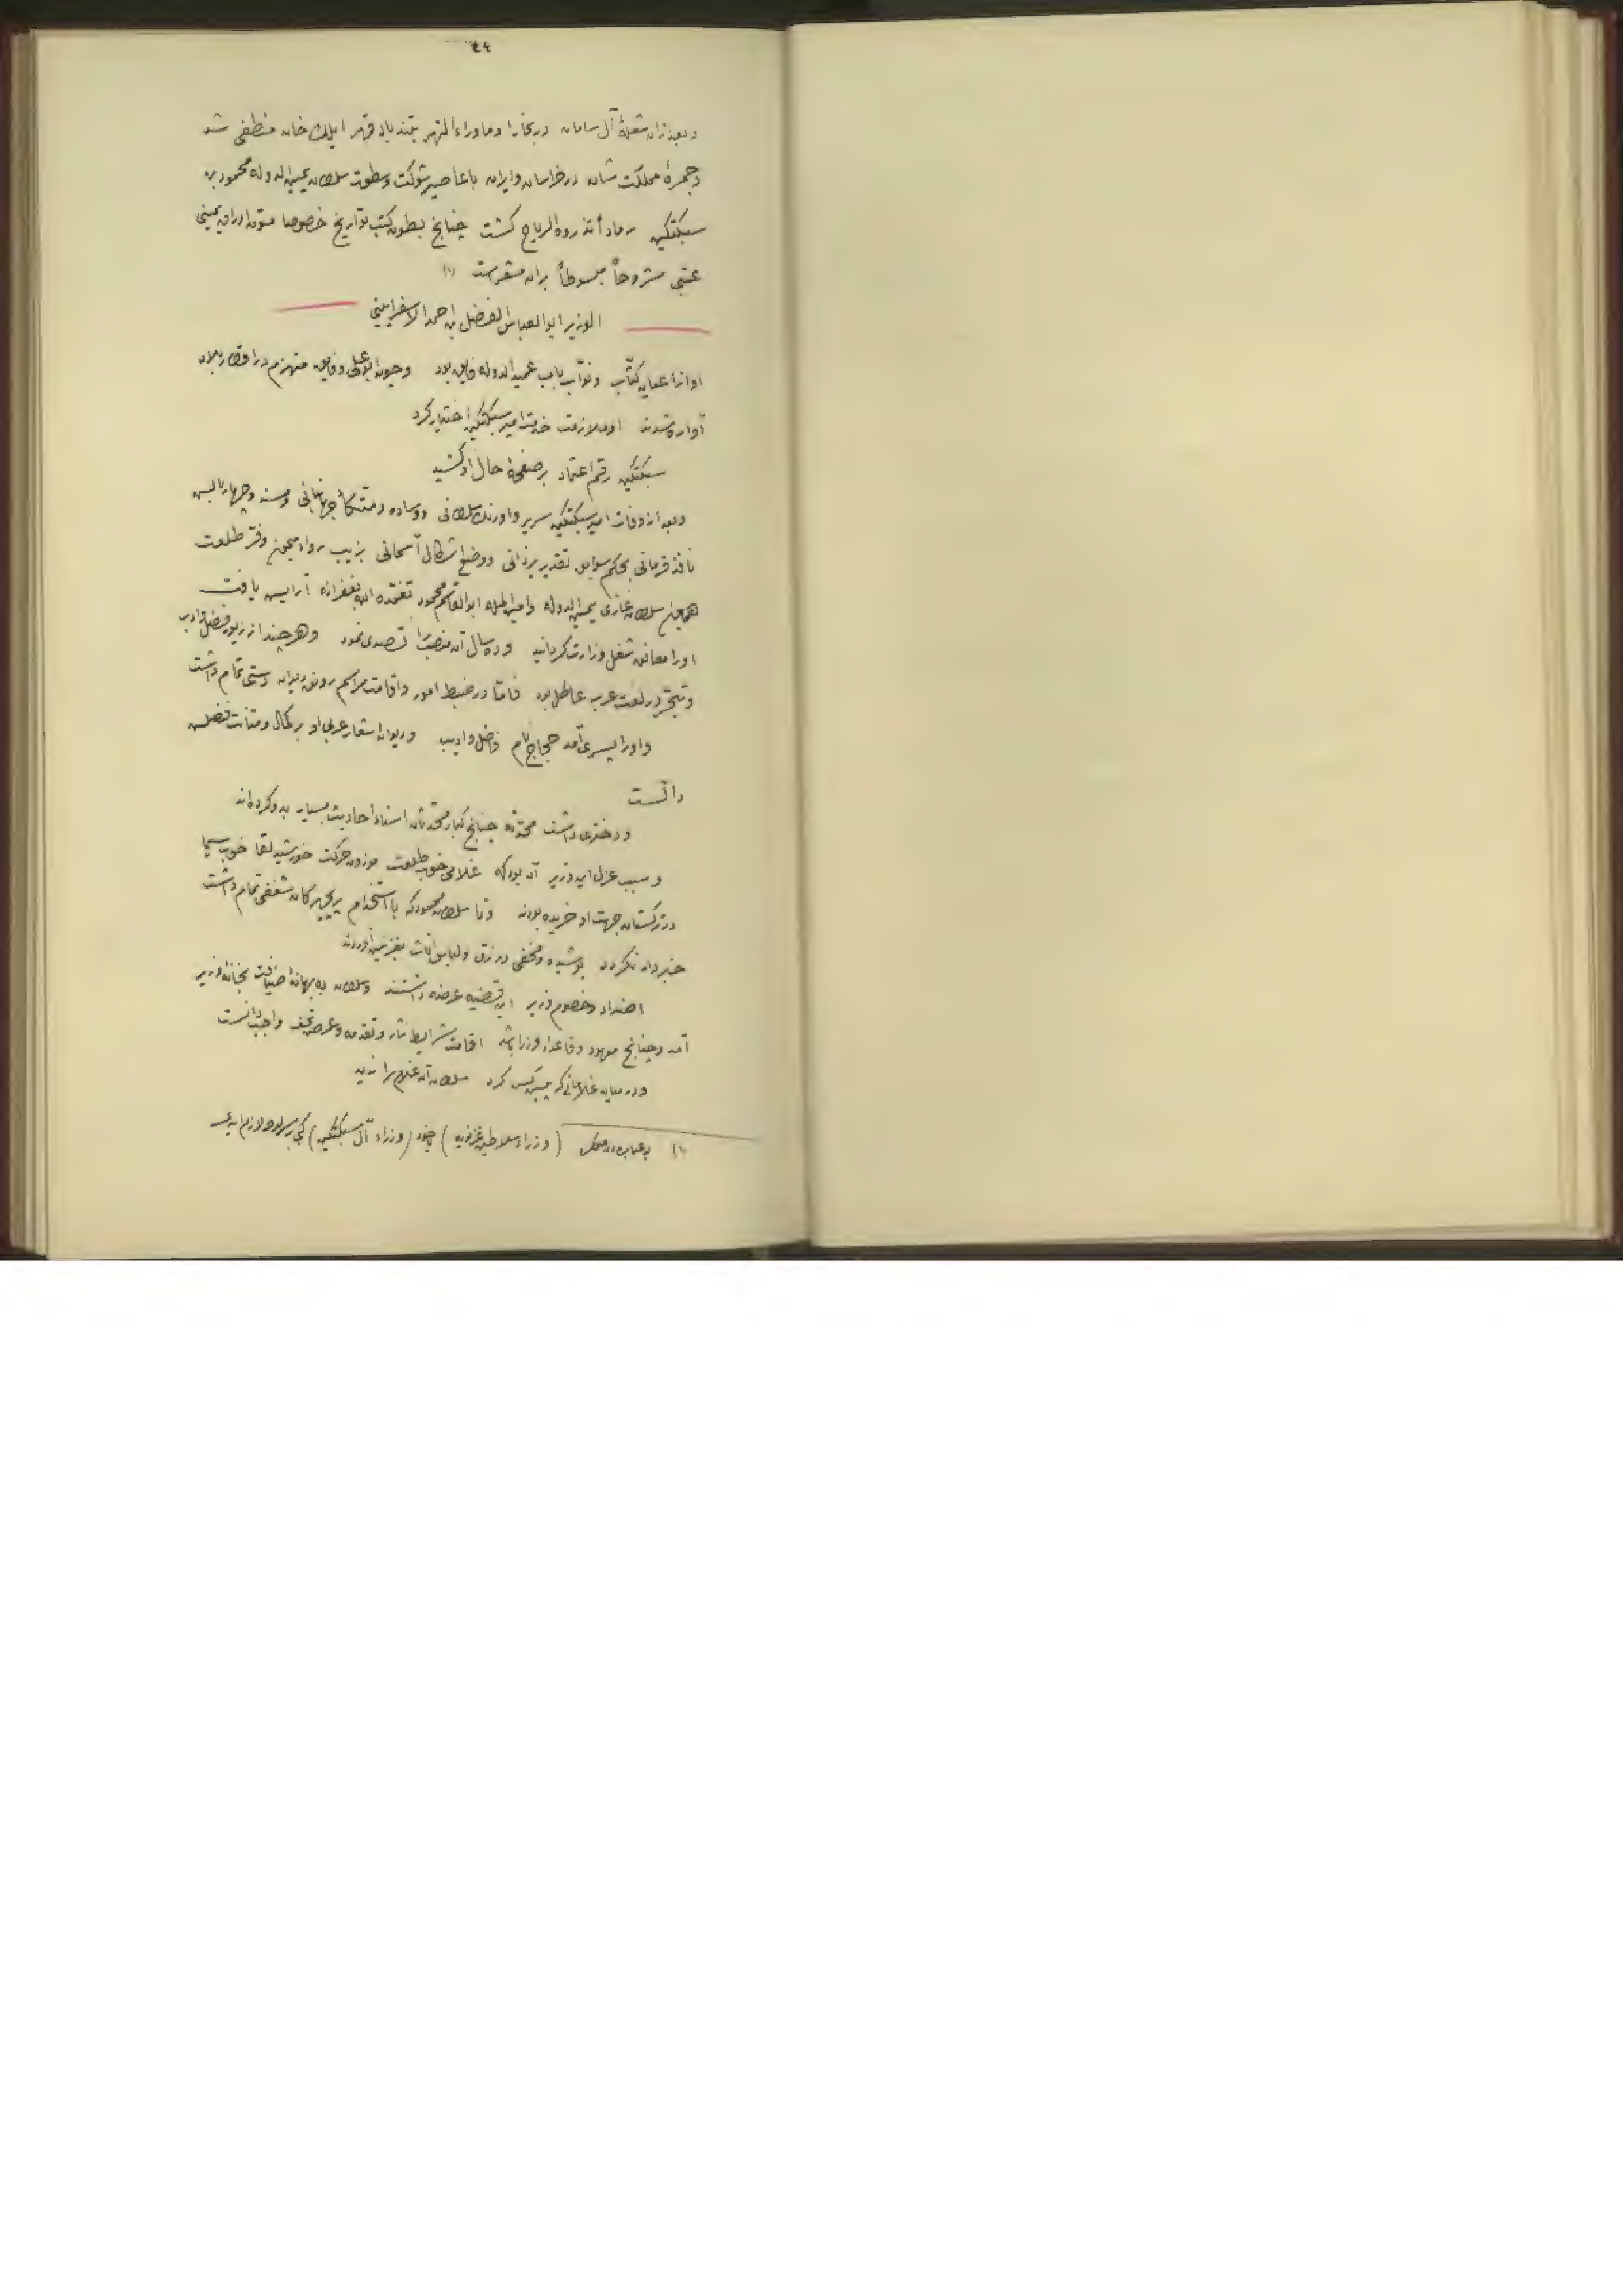 ٤٤
وبعد ازان شعلهٔ آل سامان در بخارا وماوراء النهر بتند باد قهر ایلك خان منطفی شد
وجمرهٔ مملكت شان در خراسان وایران باعاصیر شوكت وسطوت سلطان یمین الدوله محمود بن
سبكتكین رماداً تذروه الریاح كشت چنانچ بطون كتب تواریخ خصوصا متون اوراق یمینی
عتبی مشروحاً مبسوطاً بران مشعرست (١)
الوزیر ابو العباس الفضل بن احمد الاسفراینی
او از اعیان كتّاب ونوّاب باب عمید الدوله فایق بود وچون ابو علی وفایق منهزم در اقطار بلاد
آواره شدند او ملازمت خدمت امیر سبكتكین اختیار كرد
سبكتكین رقم اعتماد بر صفحهٔ حال او كشید
وبعد از وفات امیر سبكتكین سریر واورنك سلطانی ووساده ومتّكأ جهانبانی ومسند وچهار بالس
نافذ فرمانی بحكم سوابق تقدیر یزدانی ووضع اشكال آسمانی بزیب رواء میمون وفرّ طلعت
همایون سلطان غازی یمین الدوله وامین المله ابو القاسم محمود تغمّده الله بغفرانه آرایس یافت
اورا معانق شغل وزارت كردانید وده سال آن منصب را تصدی نمود وهر چند از زیور فضل وادب
وتبحّر در لغت عرب عاطل بود فامّا در ضبط امور واقامت مراسم رونق دیوان دستی تمام داشت
واورا پسری آمد حجاج نام فاضل وادیب ودیوان اشعار عربی او بر كمال ومتانت فضلس
دالّست
ودختری داشت محدّثه چنانچ كبار محدّثان اسناد احادیث بسیار بدو كرده اند
وسبب عزل این وزیر آن بود كه غلامی خوب طلعت موزون حركت خورشید لقا خوب سیما
در تركستان جهت او خریده بودند وتا سلطان محمود كه با استخدام پریچهركان شغفی تمام داشت
خبردار نكردد پوشیده ومخفی در زیّ ولباس اناث بغزنین آوردند
اضداد وخصوم وزیر این قضیه عرضه داشتند وسلطان به بهانهٔ ضیافت بخانهٔ وزیر
آمد وچنانچ معهود وقاعدهٔ وزرا باشد اقامت شرایط نثار وتقدمه وعرض تحف واجب دانست
ودر میان غلامانی كه پیشكس كرد سلطان آن غلام را ندید
(١) (وزراء سلاطین غزنویه) چون (وزراء آل سبكتكین)